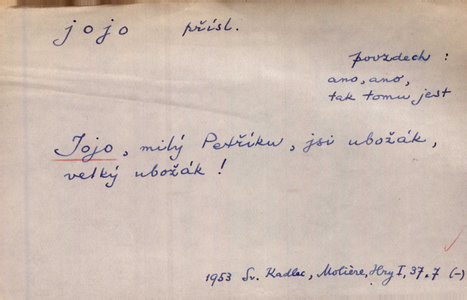 jojo přísl.
povzdech :
ano, ano,
tak tomu jest
Jojo, milý Petříku, jsi ubožák,
velký ubožák !
1953 Sv. Kadlec, Molière, Hry I, 37, 7 (-)